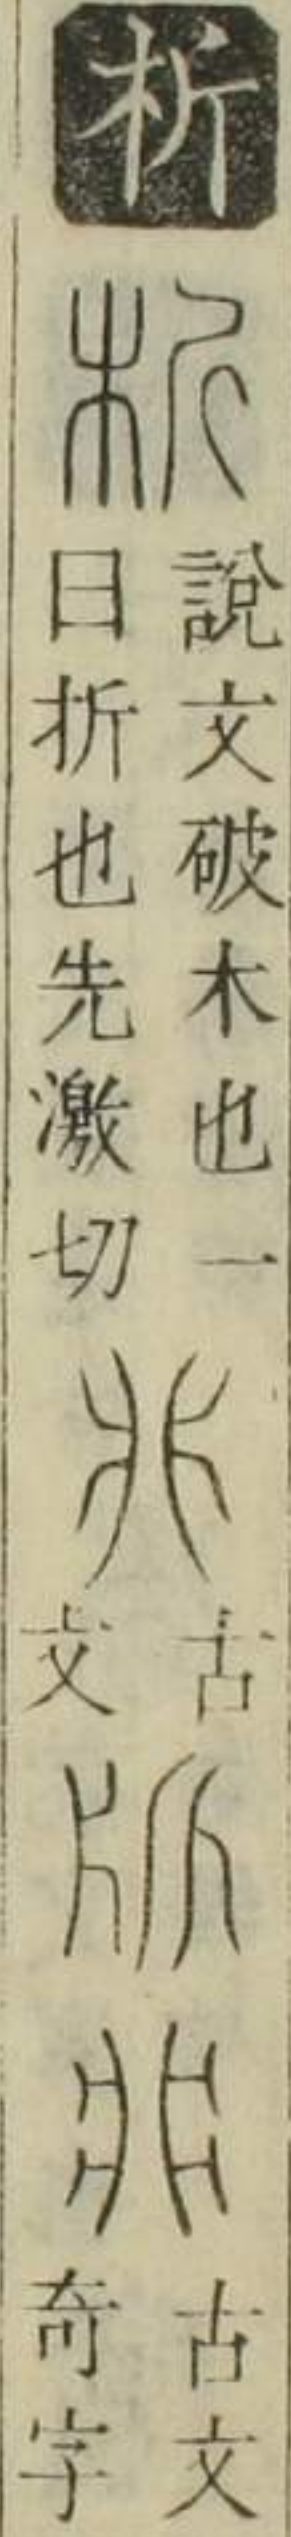 析
說文破木也一
曰折也先激切
古
文
古文
奇字